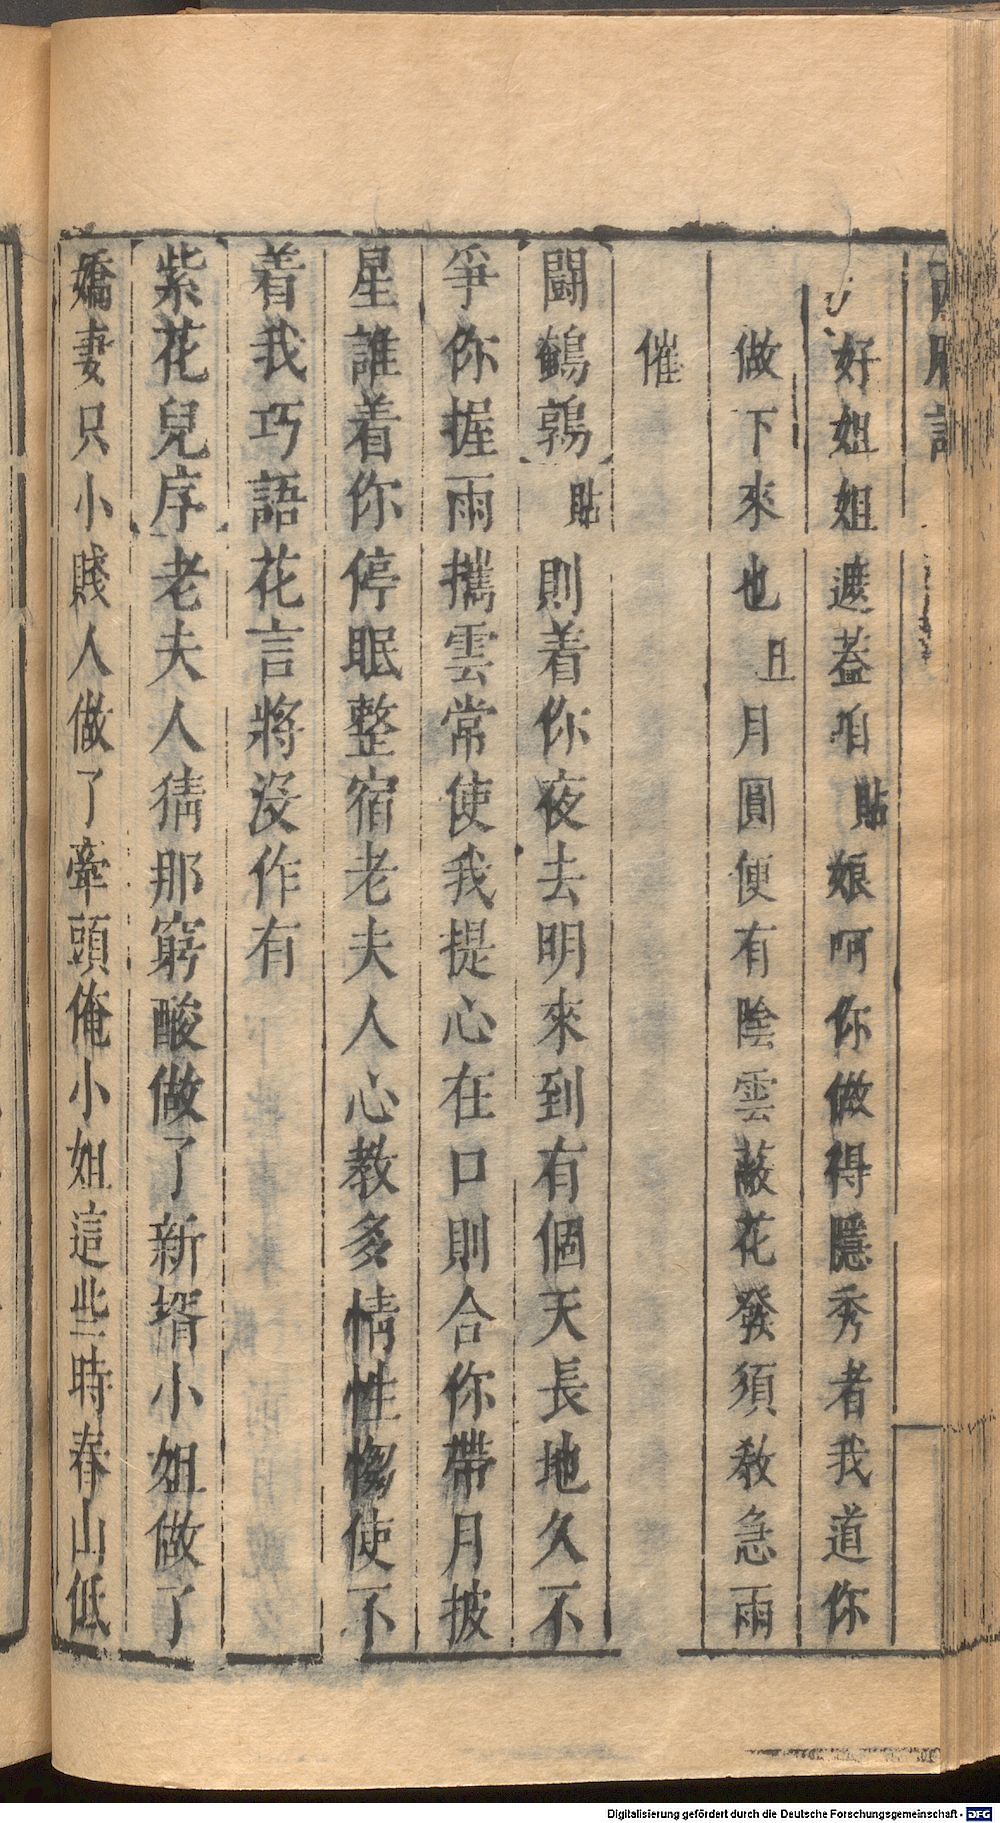 好姐姐遮蓋咱 貼 娘呵你做得隱秀者我道你
做下來也 旦 月圓便有陰雲蔽花發須教急雨
催
鬪鵪鶉 貼 則着你夜去明來到有個天長地久不
爭你握雨攜雲常使我提心在口則合你帶月披
星誰着你停眠整宿老夫人心教多情性㑳使不
着我巧語花言將沒作有
紫花兒序老夫人猜那窮酸做了新壻小姐做了
嬌妻只小賤人做了牽頭俺小姐這些時春山低
Digitalisierung gefördert durch die Deutsche Forschungsgemeinschaft - DFG